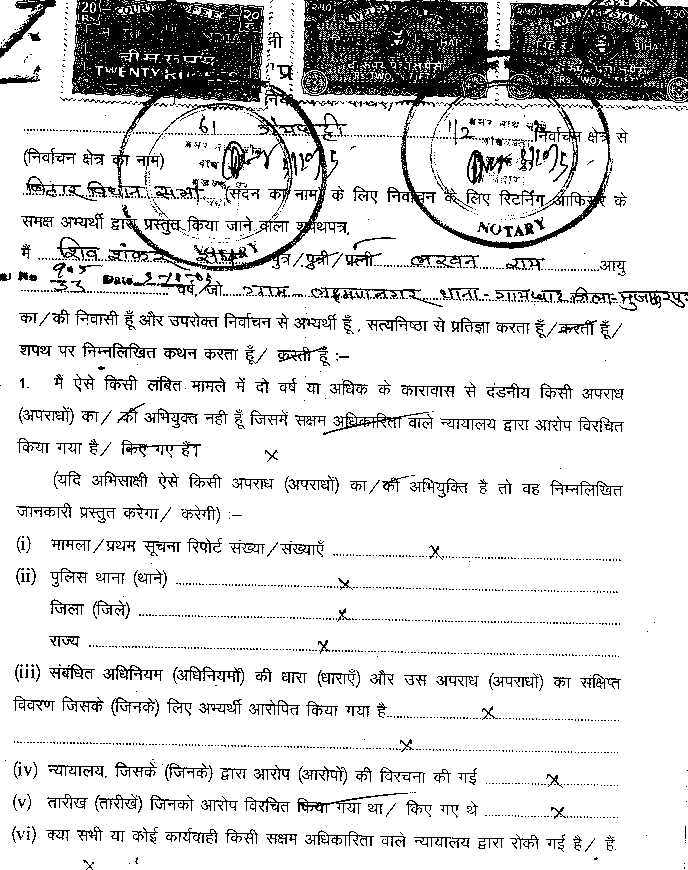 20 COURT FEE 20
बीस रुपये
TWENTY RUPEES
BIHAR
BIHAR
61 1/2 निर्वाचन क्षेत्र से
(निर्वाचन क्षेत्र का नाम)
बिहार विधान सभा (सदन का नाम) के लिए निर्वाचन के लिए रिटर्निंग ऑफिसर के
NOTARY
NOTARY
समक्ष अभ्यर्थी द्वारा प्रस्तुत किया जाने वाला शपथपत्र.
मैं शिव शंकर राम पुत्र/पुत्री/पत्नी लखन राम आयु
33 वर्ष/जो ग्राम लक्ष्मणनगर थाना- जिला-
का/की निवासी हूँ और उपरोक्त निर्वाचन से अभ्यर्थी हूँ, सत्यनिष्ठा से प्रतिज्ञा करता हूँ/करती हूँ/
शपथ पर निम्नलिखित कथन करता हूँ/ करती हूँ :–
1. मैं ऐसे किसी लंबित मामले में दो वर्ष या अधिक के कारावास से दंडनीय किसी अपराध
(अपराधों) का/ की अभियुक्त नही हूँ जिसमें सक्षम अधिकारिता वाले न्यायालय द्वारा आरोप विरचित
किया गया है/ किए गए हैं। x
(यदि अभिसाक्षी ऐसे किसी अपराध (अपराधों) का/की अभियुक्ति है तो वह निम्नलिखित
जानकारी प्रस्तुत करेगा/ करेगी) :–
(i) मामला/प्रथम सूचना रिपोर्ट संख्या/संख्याएँ x
(ii) पुलिस थाना (थाने) x
जिला (जिले) x
राज्य x
(iii) संबंधित अधिनियम (अधिनियमों) की धारा (धाराएँ) और उस अपराध (अपराधों) का संक्षिप्त
विवरण जिसके (जिनके) लिए अभ्यर्थी आरोपित किया गया है x
x
(iv) न्यायालय, जिसके (जिनके) द्वारा आरोप (आरोपों) की विरचना की गई x
(v) तारीख (तारीखें) जिनको आरोप विरचित किया गया था/ किए गए थे x
(vi) क्या सभी या कोई कार्यवाही किसी सक्षम अधिकारिता वाले न्यायालय द्वारा रोकी गई है/ हैं.
x